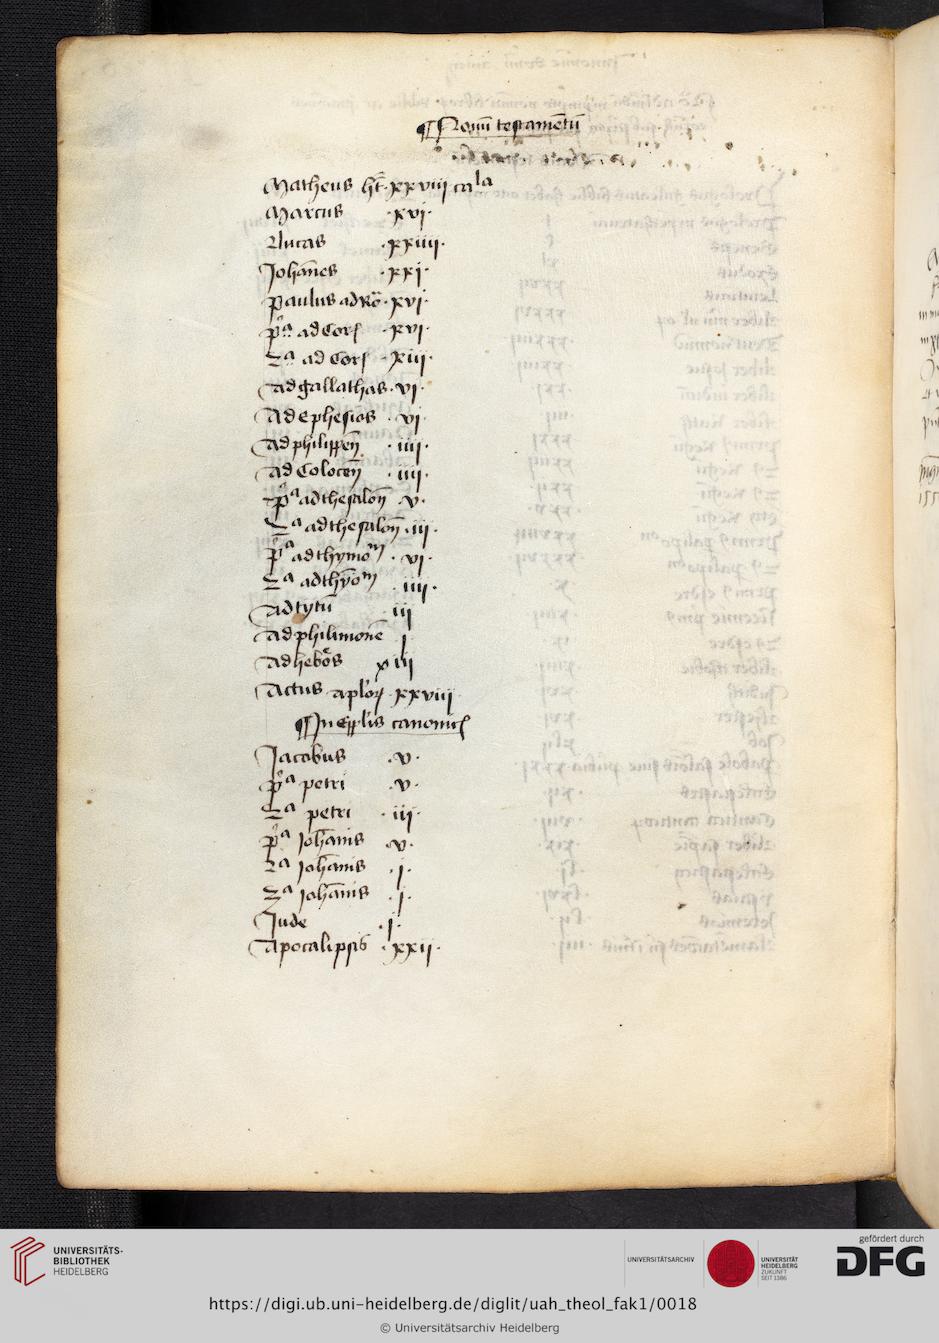 ¶ Nouū testamētū
Matheus hꝫ · xxviii ca^la
Marcus · xvi ·
Lucas · xxiiii ·
Johānes · xxi ·
paulus ad Ro · xvi ·
p^a ad Cor · xvi ·
2^a ad Cor · xiii ·
ad gallathas · vi ·
ad ephesios · vi
ad philippeñ · iiii ·
ad Coloceñ · iiii ·
p^a ad thesaloñ · v ·
2^a ad thesaloñ · iii ·
p^a ad thymo^m · vi ·
2^a ad thyo^m · iiii ·
ad tytū iii
ad philimonē i
ad hebos xiii
Actus aplor · xxviii ·
¶ In epl̄is canonic
Jacobus · v ·
p^a petri · v ·
2^a petri · iii ·
p^a Johānis · v ·
2^a Johānis · i ·
3^a Johānis · i ·
Jude · i ·
Apocalipsis · xxii ·
UNIVERSITÄTS-
BIBLIOTHEK
HEIDELBERG
UNIVERSITÄTSARCHIV
UNIVERSITÄT
HEIDELBERG
ZUKUNFT
SEIT 1386
gefördert durch
DFG
https://digi.ub.uni-heidelberg.de/diglit/uah_theol_fak1/0018
© Universitätsarchiv Heidelberg